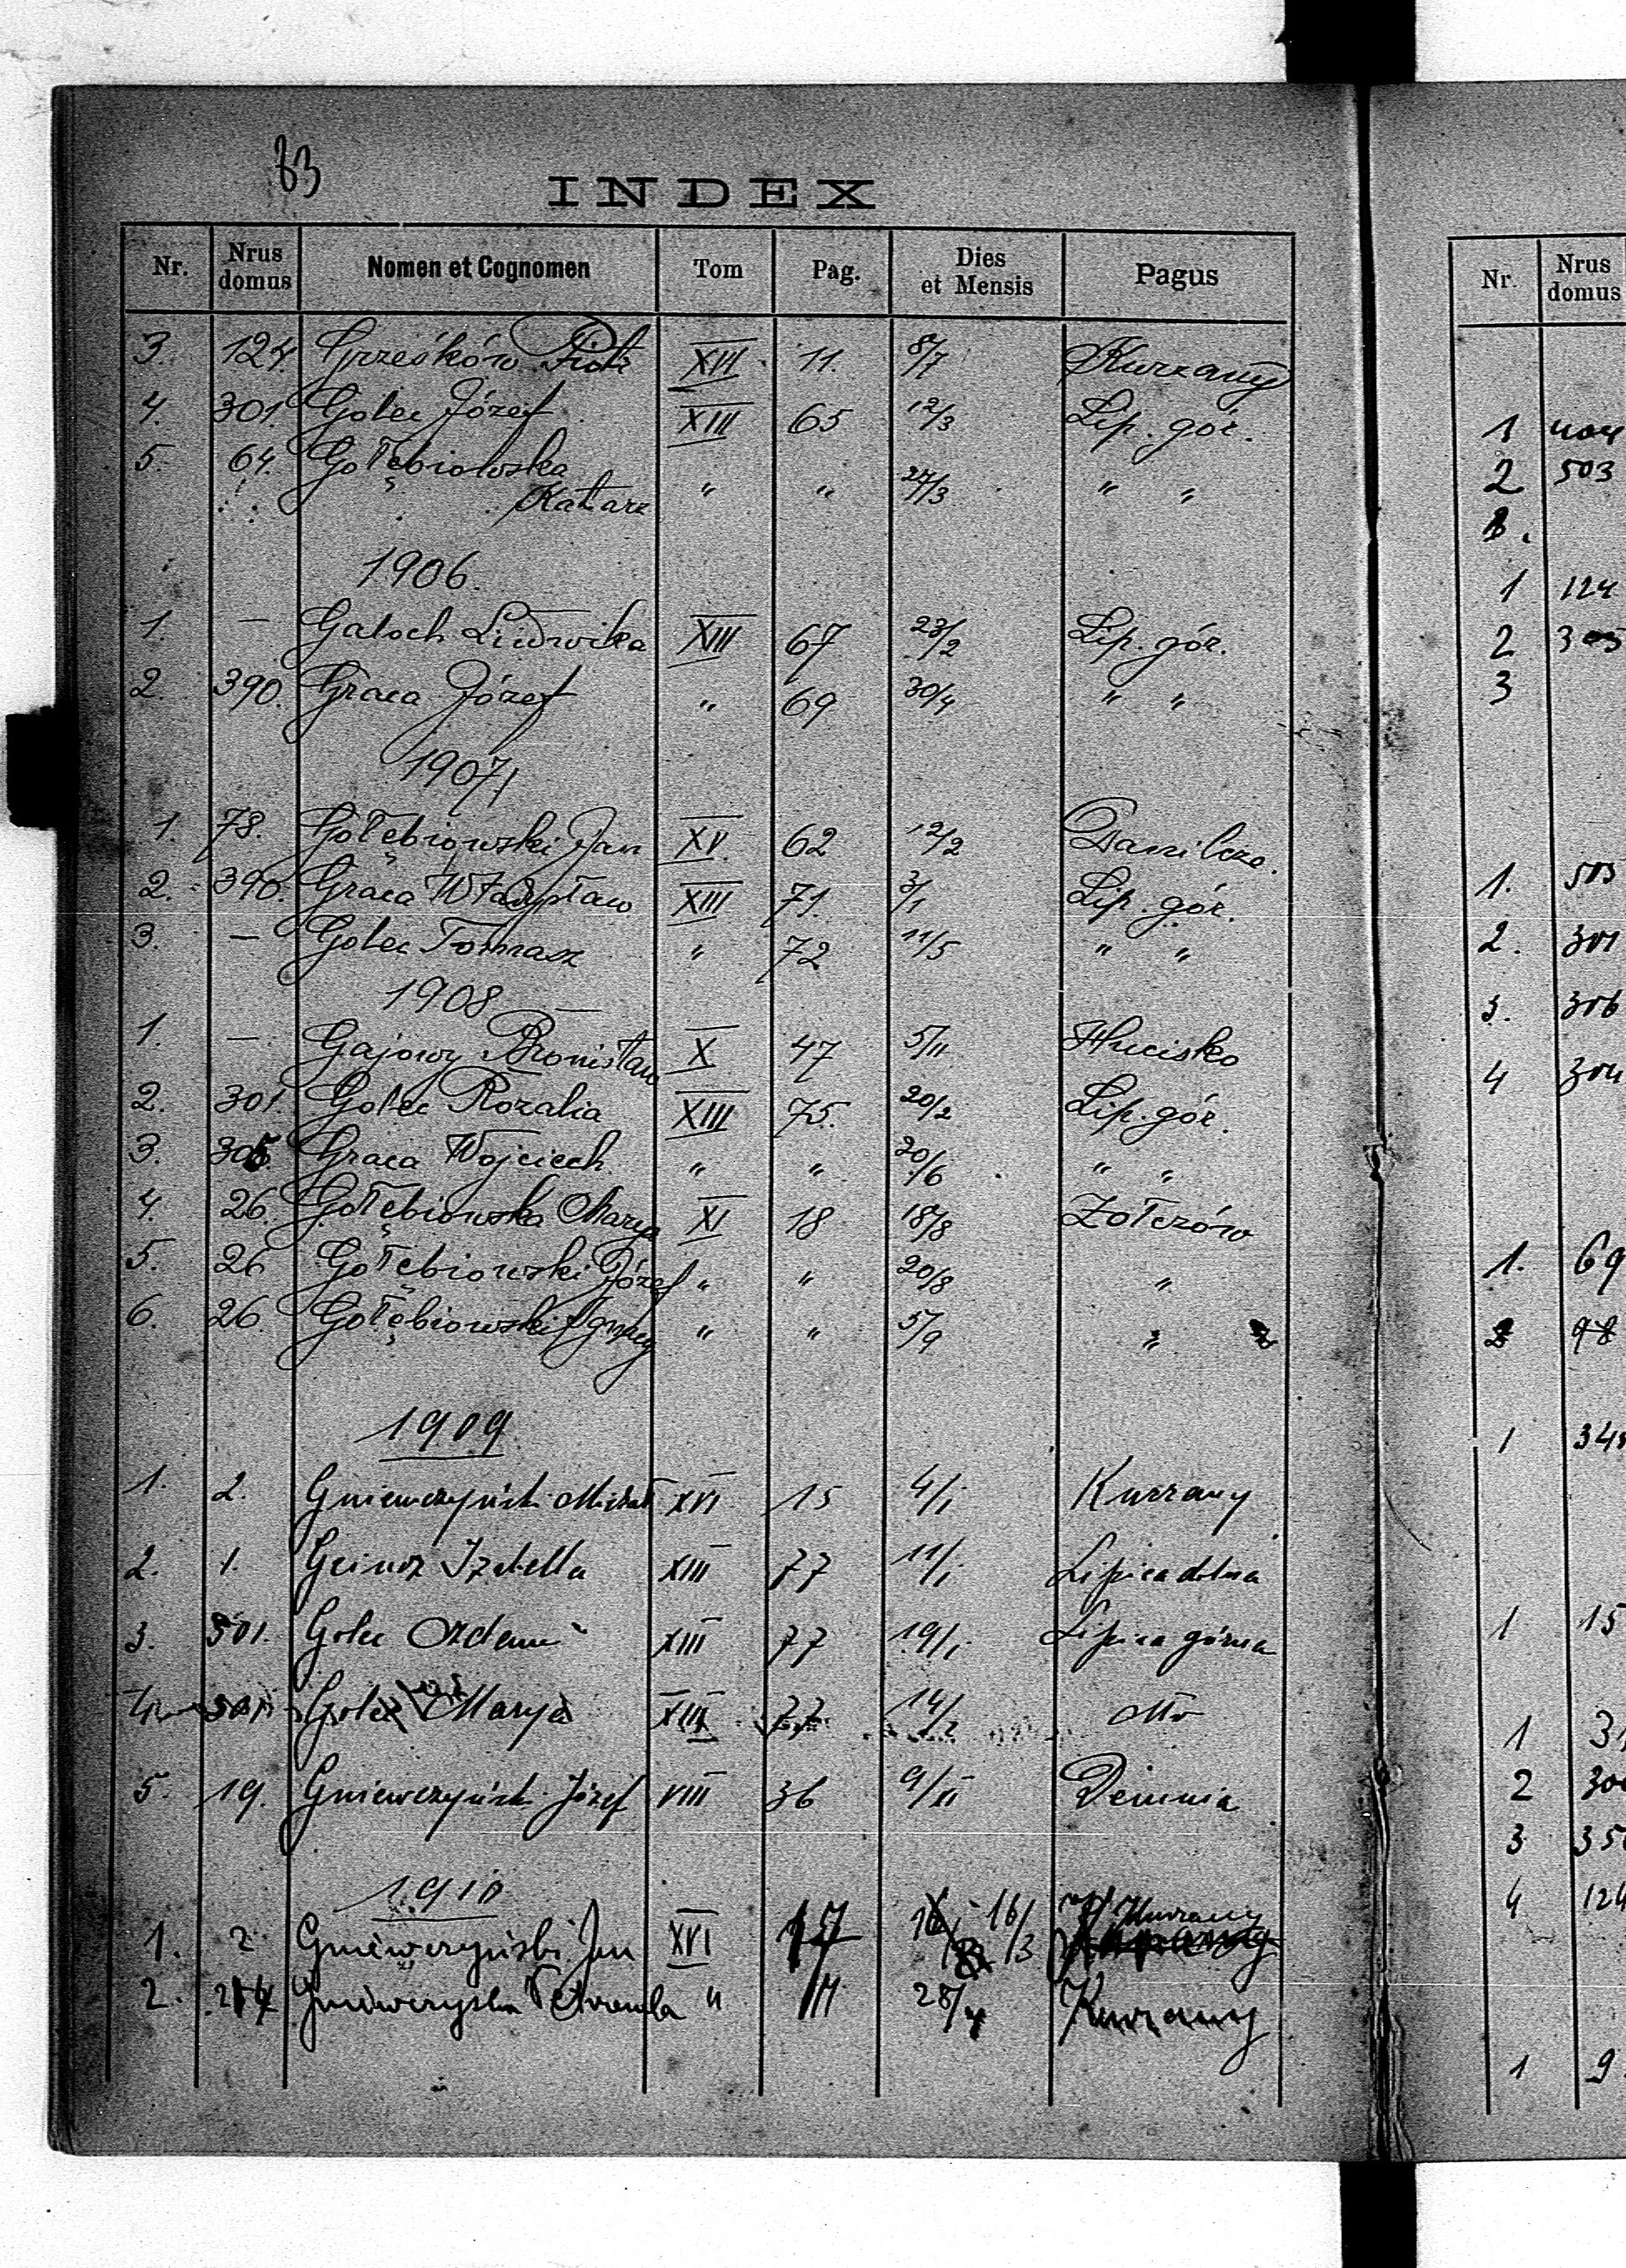 63
INDEX
Nr. Nrus domus Nomen et Cognomen Tom Pag. Dies et Mensis Pagus
3. 124. Grześków Piotr XVI 11. 8/7 Kurzany
4. 301. Golec Józef XIII 65 12/3 Lip. gór.
5. 64. Gołębiowska
Katarz " " 27/3 " "
1906.
1. — Galoch Ludwika XIII 67 23/2 Lip. gór.
2. 390. Graca Józef " 69 30/4 " "
1907
1. 78. Gołębiowski Jan XV 62 12/2 Danilcze.
2. 390. Graca Władysław XIII 71. 3/1 Lip. gór.
3. — Golec Tomasz " 72 11/5 " "
1908
1. — Gajowy Bronisław X 47 5/11 Hucisko
2. 301. Golec Rozalia XIII 75. 20/2 Lip. gór.
3. 305. Graca Wojciech " " 20/6 " "
4. 26. Gołębiowska Marya XI 18 18/8 Zołczów
5. 26 Gołębiowski Józef " " 20/8 "
6. 26. Gołębiowski Ignacy " " 5/9 "
1909
1. 2. Gniewczyński Michał XVI 15 4/1 Kurzany
2. 1. Izabella XIII 77 11/1 Lipica dolna
3. 301. Golec Adam XIII 77 19/1 Lipica górna
4. 301 Golec Marya XIII 77 14/2
5. 19. Gniewczyński Józef VIII 36 9/XI Demnia
1910
1. 2 Gniewczyński Jan XVI 17 16/3 Kurzany
2. Gniewczyńska Petronela " 28/4 Kurzany
Nr. Nrus domus
1 404
2 503
1 124
2 305
3
1. 503
2. 301
3. 306
4 304
1. 69
2 98
1
1 15
1
2
3
4 124
1 9